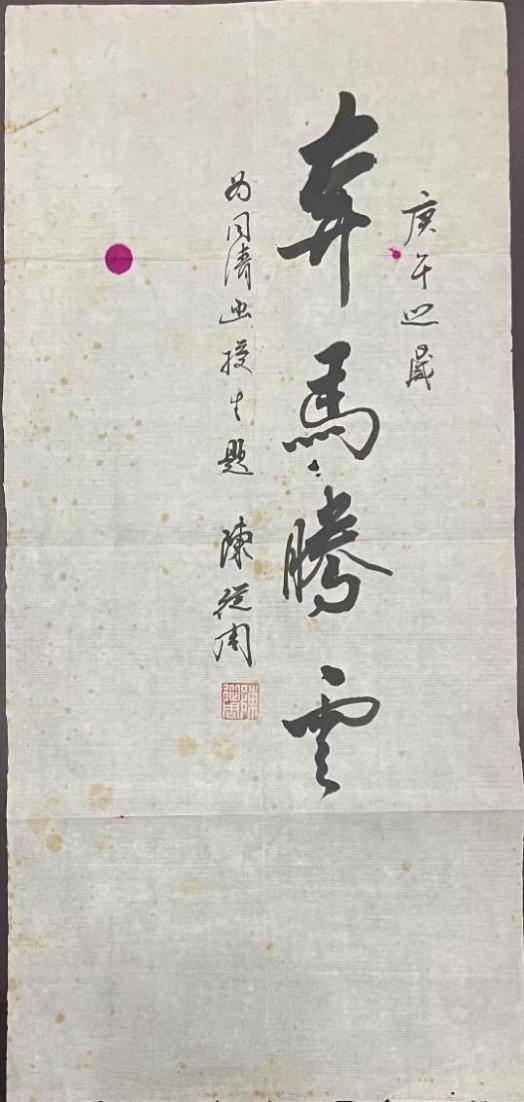 庚午之歲
奔馬騰雲
为同濟函授生題 陳從周
陳從周